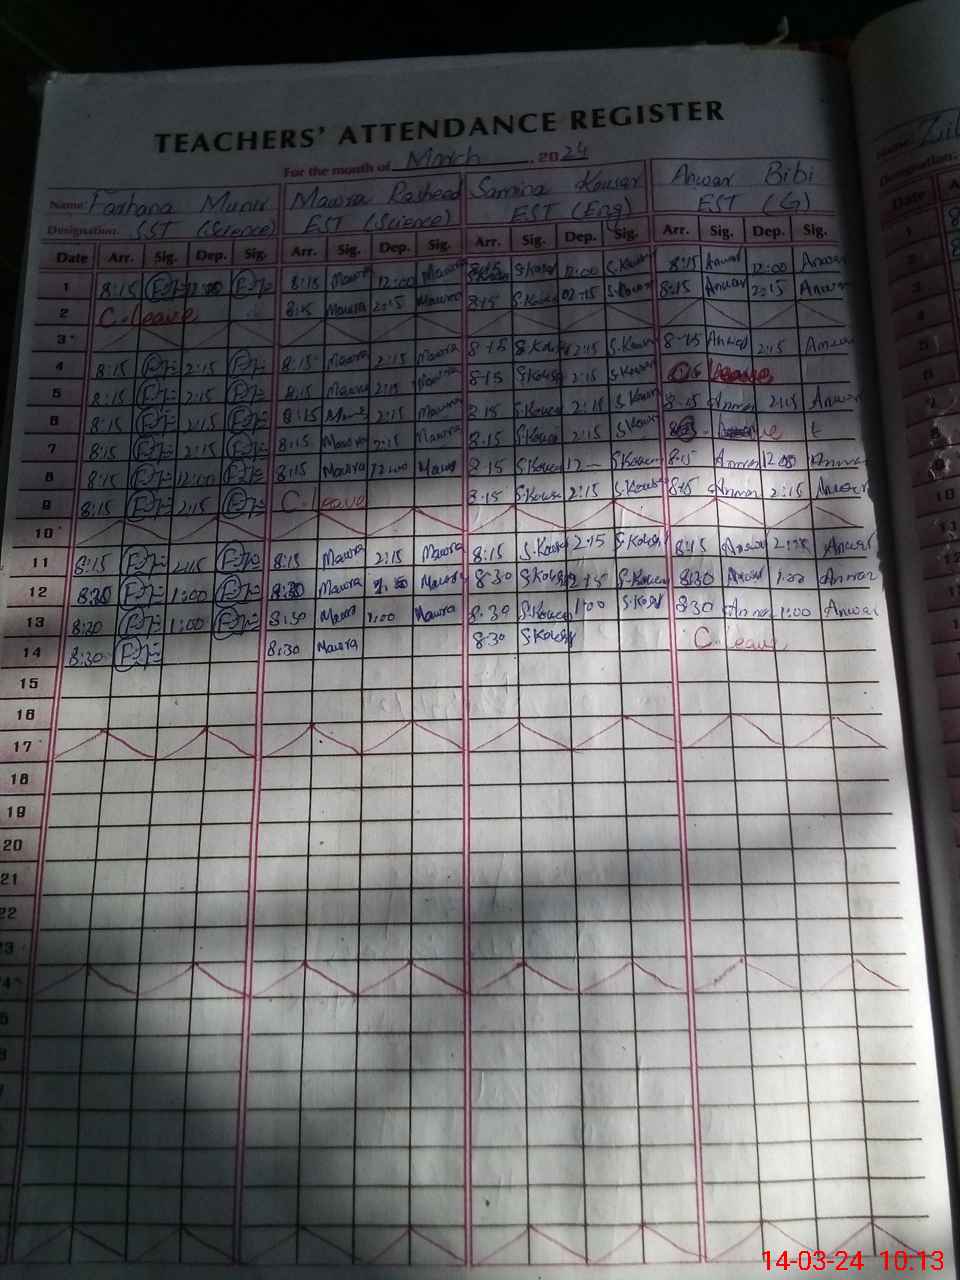 TEACHERS' ATTENDANCE REGISTER
For the month of March, 2024
Name: Farhana Munir Mawra Rasheed Samina Kousar Anwar Bibi
Designation. SST (Science) EST (Science) EST (Eng) EST (G)
Date Arr. Sig. Dep. Sig. Arr. Sig. Dep. Sig. Arr. Sig. Dep. Sig. Arr. Sig. Dep. Sig.
1 8:15 12:00 8:15 Mawra 12:00 Mawra S.Kousar 12:00 S.Kousar 8:15 Anwar 12:00 Anwar
2 C.leave 8:15 Mawra 2:15 Mawra 8:15 S.Kousar 02:15 S.Kousar 8:15 Anwar 2:15 Anwar
3
4 8:15 2:15 8:15 Mawra 2:15 Mawra 8:15 S.Kousar 2:15 S.Kousar 8:15 Anwar 2:15 Anwar
5 8:15 2:15 8:15 Mawra 2:15 Mawra 8:15 S.Kousar 2:15 S.Kousar
6 8:15 2:15 8:15 Mawra 2:15 Mawra 8:15 S.Kousar 2:15 S.Kousar 8:15 Anwar 2:15 Anwar
7 8:15 2:15 8:15 Mawra 2:15 Mawra 8:15 S.Kousar 2:15 S.Kousar
8 8:15 12:00 8:15 Mawra 12:00 Mawra 8:15 S.Kousar 12 S.Kousar 8:15 Anwar 12:00 Anwar
9 8:15 2:15 C.leave 8:15 S.Kousar 2:15 S.Kousar 8:15 Anwar 2:15 Anwar
10
11 8:15 2:15 8:15 Mawra 2:15 Mawra 8:15 S.Kousar 2:15 S.Kousar 8:15 Anwar 2:15 Anwar
12 8:30 1:00 8:30 Mawra Mawra 8:30 S.Kousar S.Kousar 8:30 Anwar 1:00 Anwar
13 8:30 1:00 8:30 Mawra 1:00 Mawra 8:30 S.Kousar 1:00 S.Kousar 8:30 Anwar 1:00 Anwar
14 8:30 8:30 Mawra 8:30 S.Kousar C.leave
15
16
17
18
19
20
21
22
14-03-24 10:13